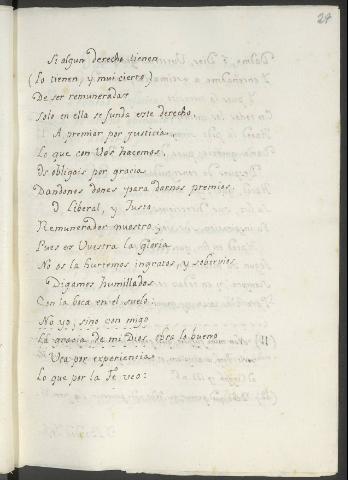 24
Si algun derecho tienen
(Lo tienen, y mui cierto)
De ser remuneradas
Solo en ella se funda este derecho.
A premiar por justicia,
Lo que con Vos hacemos,
Os obligais por gracia
Dandonos dones para darnos premios.
O Liberal, y Justo
Remunerador nuestro;
Pues es Vuestra la gloria
No os la hurtemos ingratos, y sobervios
Digamos humillados
Con la boca en el suelo:
No yo, sino con migo
La gracia de mi Dios, obra lo bueno
Vea por experiencia
Lo que por la Fe veo: